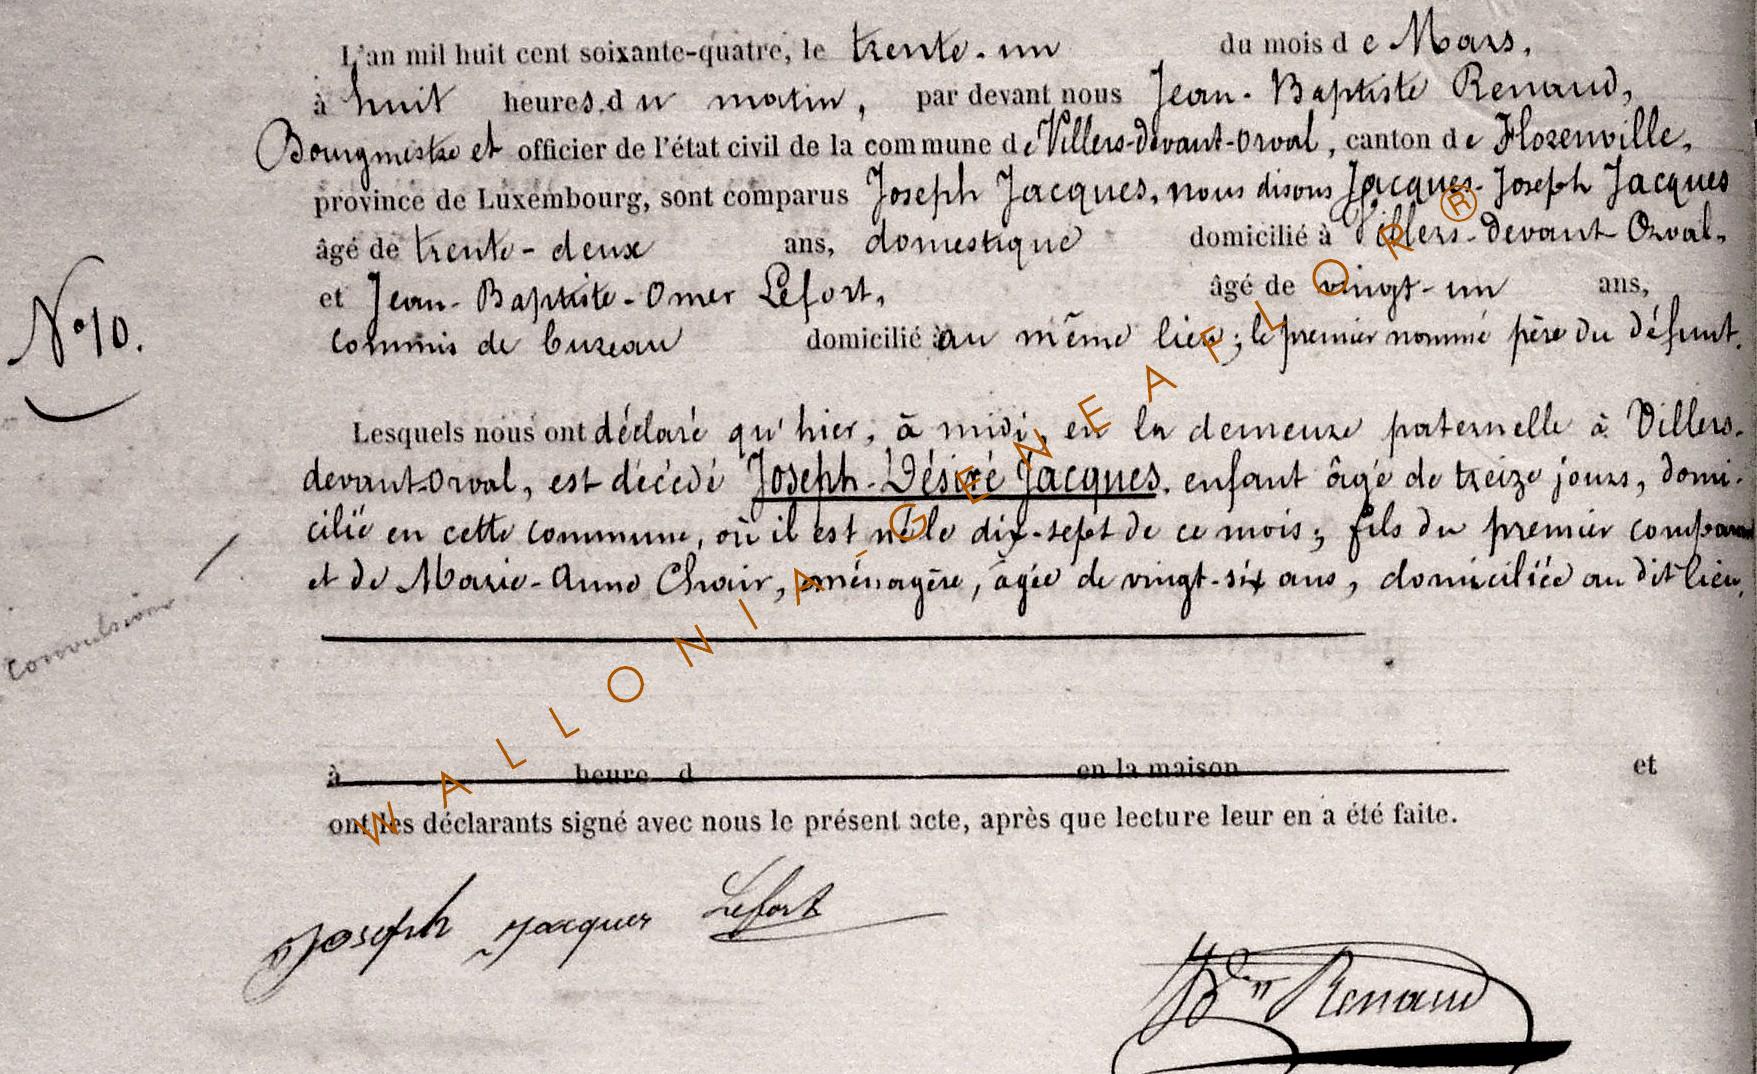 L'an mil huit cent soixante-quatre, le trente-un du mois de Mars,
à huit heures du matin, par devant nous Jean-Baptiste Renaud,
Bourgmestre et officier de l'état civil de la commune de Villers-devant-Orval, canton de Florenville,
province de Luxembourg, sont comparus Joseph Jacques, nous disons Jacques-Joseph Jacques
âgé de trente-deux ans, domestique domicilié à Villers-devant-Orval,
et Jean-Baptiste-Omer Lefort, âgé de vingt-un ans,
N° 10.
commis de bureau domicilié au même lieu; le premier nommé père du défunt.
Lesquels nous ont déclaré qu'hier, à midi, en la demeure paternelle à Villers-
devant-Orval, est décédé Joseph-Désiré Jacques, enfant âgé de treize jours, domi-
cilié en cette commune, où il est né le dix-sept de ce mois; fils du premier comparant
et de Marie-Anne Chair, ménagère, âgée de vingt-six ans, domiciliée au dit lieu.
convulsions
à heure d en la maison et
ont les déclarants signé avec nous le présent acte, après que lecture leur en a été faite.
Joseph Jacques Lefort
Renaud
WALLONIA-GENEAFLOR®